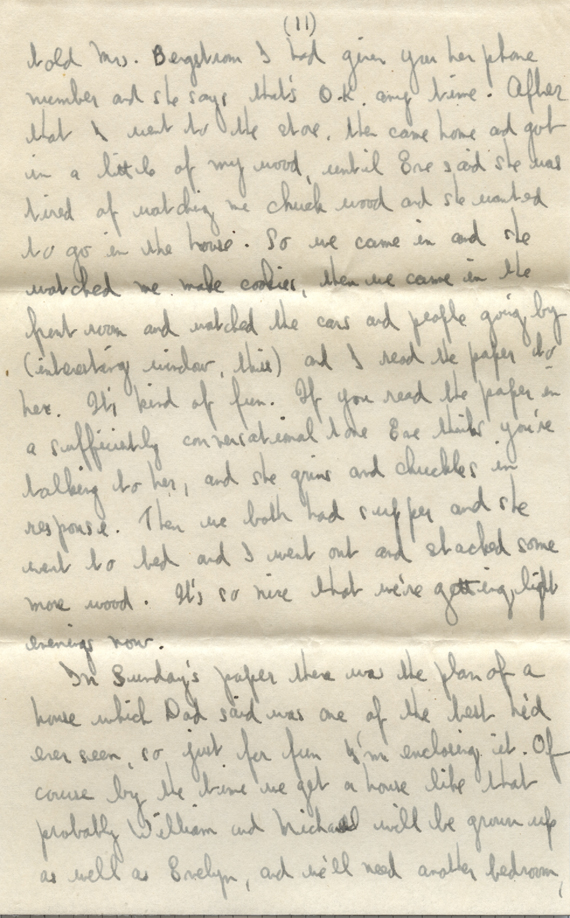 (11)
told Mrs. Bergstrom I had given you her phone
number and she says that's O.K. any time. After
that I went to the store, then came home and got
in a little of my wood, until Eve said she was
tired of watching me chuck wood and she wanted
to go in the house. So we came in and she
watched me make cookies, then we came in the
front room and watched the cars and people going by
(interesting window, this) and I read the paper to
her. It's kind of fun. If you read the paper in
a sufficiently conversational tone Eve thinks you're
talking to her, and she grins and chuckles in
response. Then we both had supper and she
went to bed and I went out and stacked some
more wood. It's so nice that we're getting light
evenings now.
In Sunday's paper there was the plan of a
house which Dad said was one of the best he'd
ever seen, so just for fun I'm enclosing it. Of
course by the time we get a house like that
probably William and Michael will be grown up
as well as Evelyn, and we'll need another bedroom,